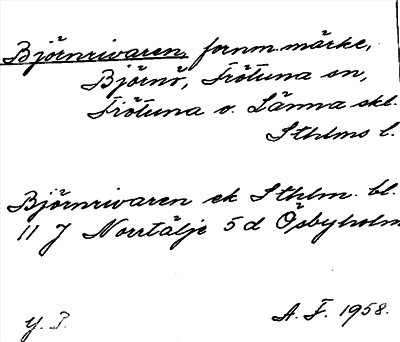 Björnrivaren, fornm.märke,
Björnö, Frötuna sn,
Frötuna o. Länna skl.
Sthlms l.
Björnrivaren ek Sthlm bl.
11 J Norrtälje 5 d Ösbyholm
Y. P.
A. F. 1958.